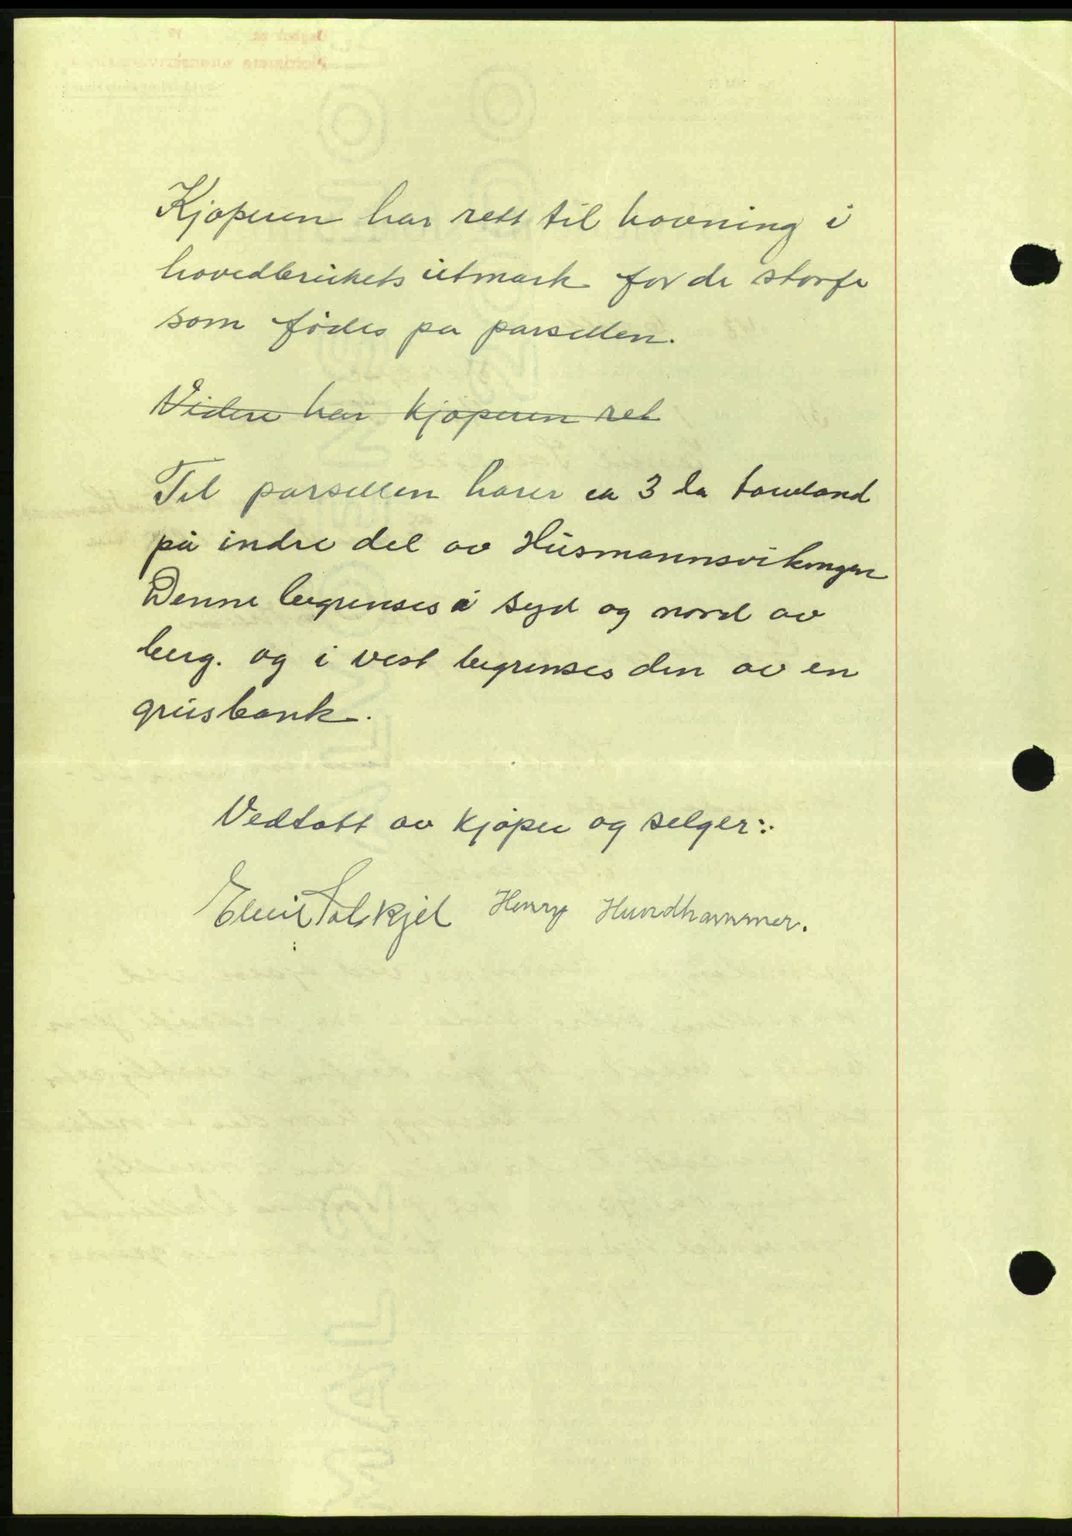 Kjøperen har rett til havning i
hovedbrukets utmark for de storfe
som fødes på parsellen.
Videre har kjøperen ret
Til parsellen hører ca 3 da taueland
på indre del av Husmannsvikongen
Denne begrenses i syd og nord av
berg. og i vest begrenses den av en
grusbank.
Vedtatt av kjøper og selger:
Emil Solskjel Henry Hundhammer.